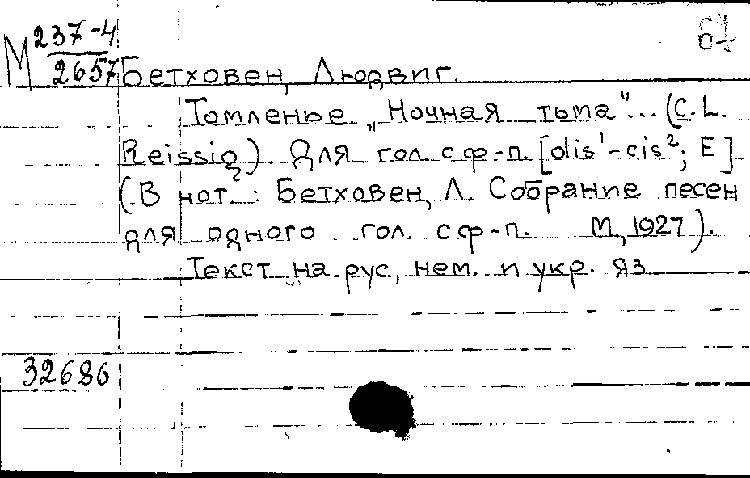 М 237-4
2657
Бетховен, Людвиг.
Томленье „Ночная тьма"... (C. L.
Reissig) Для гол. с ф-п. [dis¹-cis²; E]
(В нот.: Бетховен, Л. Собрание песен
для одного гол. с ф-п. М, 1927).
Текст на рус, нем. и укр. яз
32686